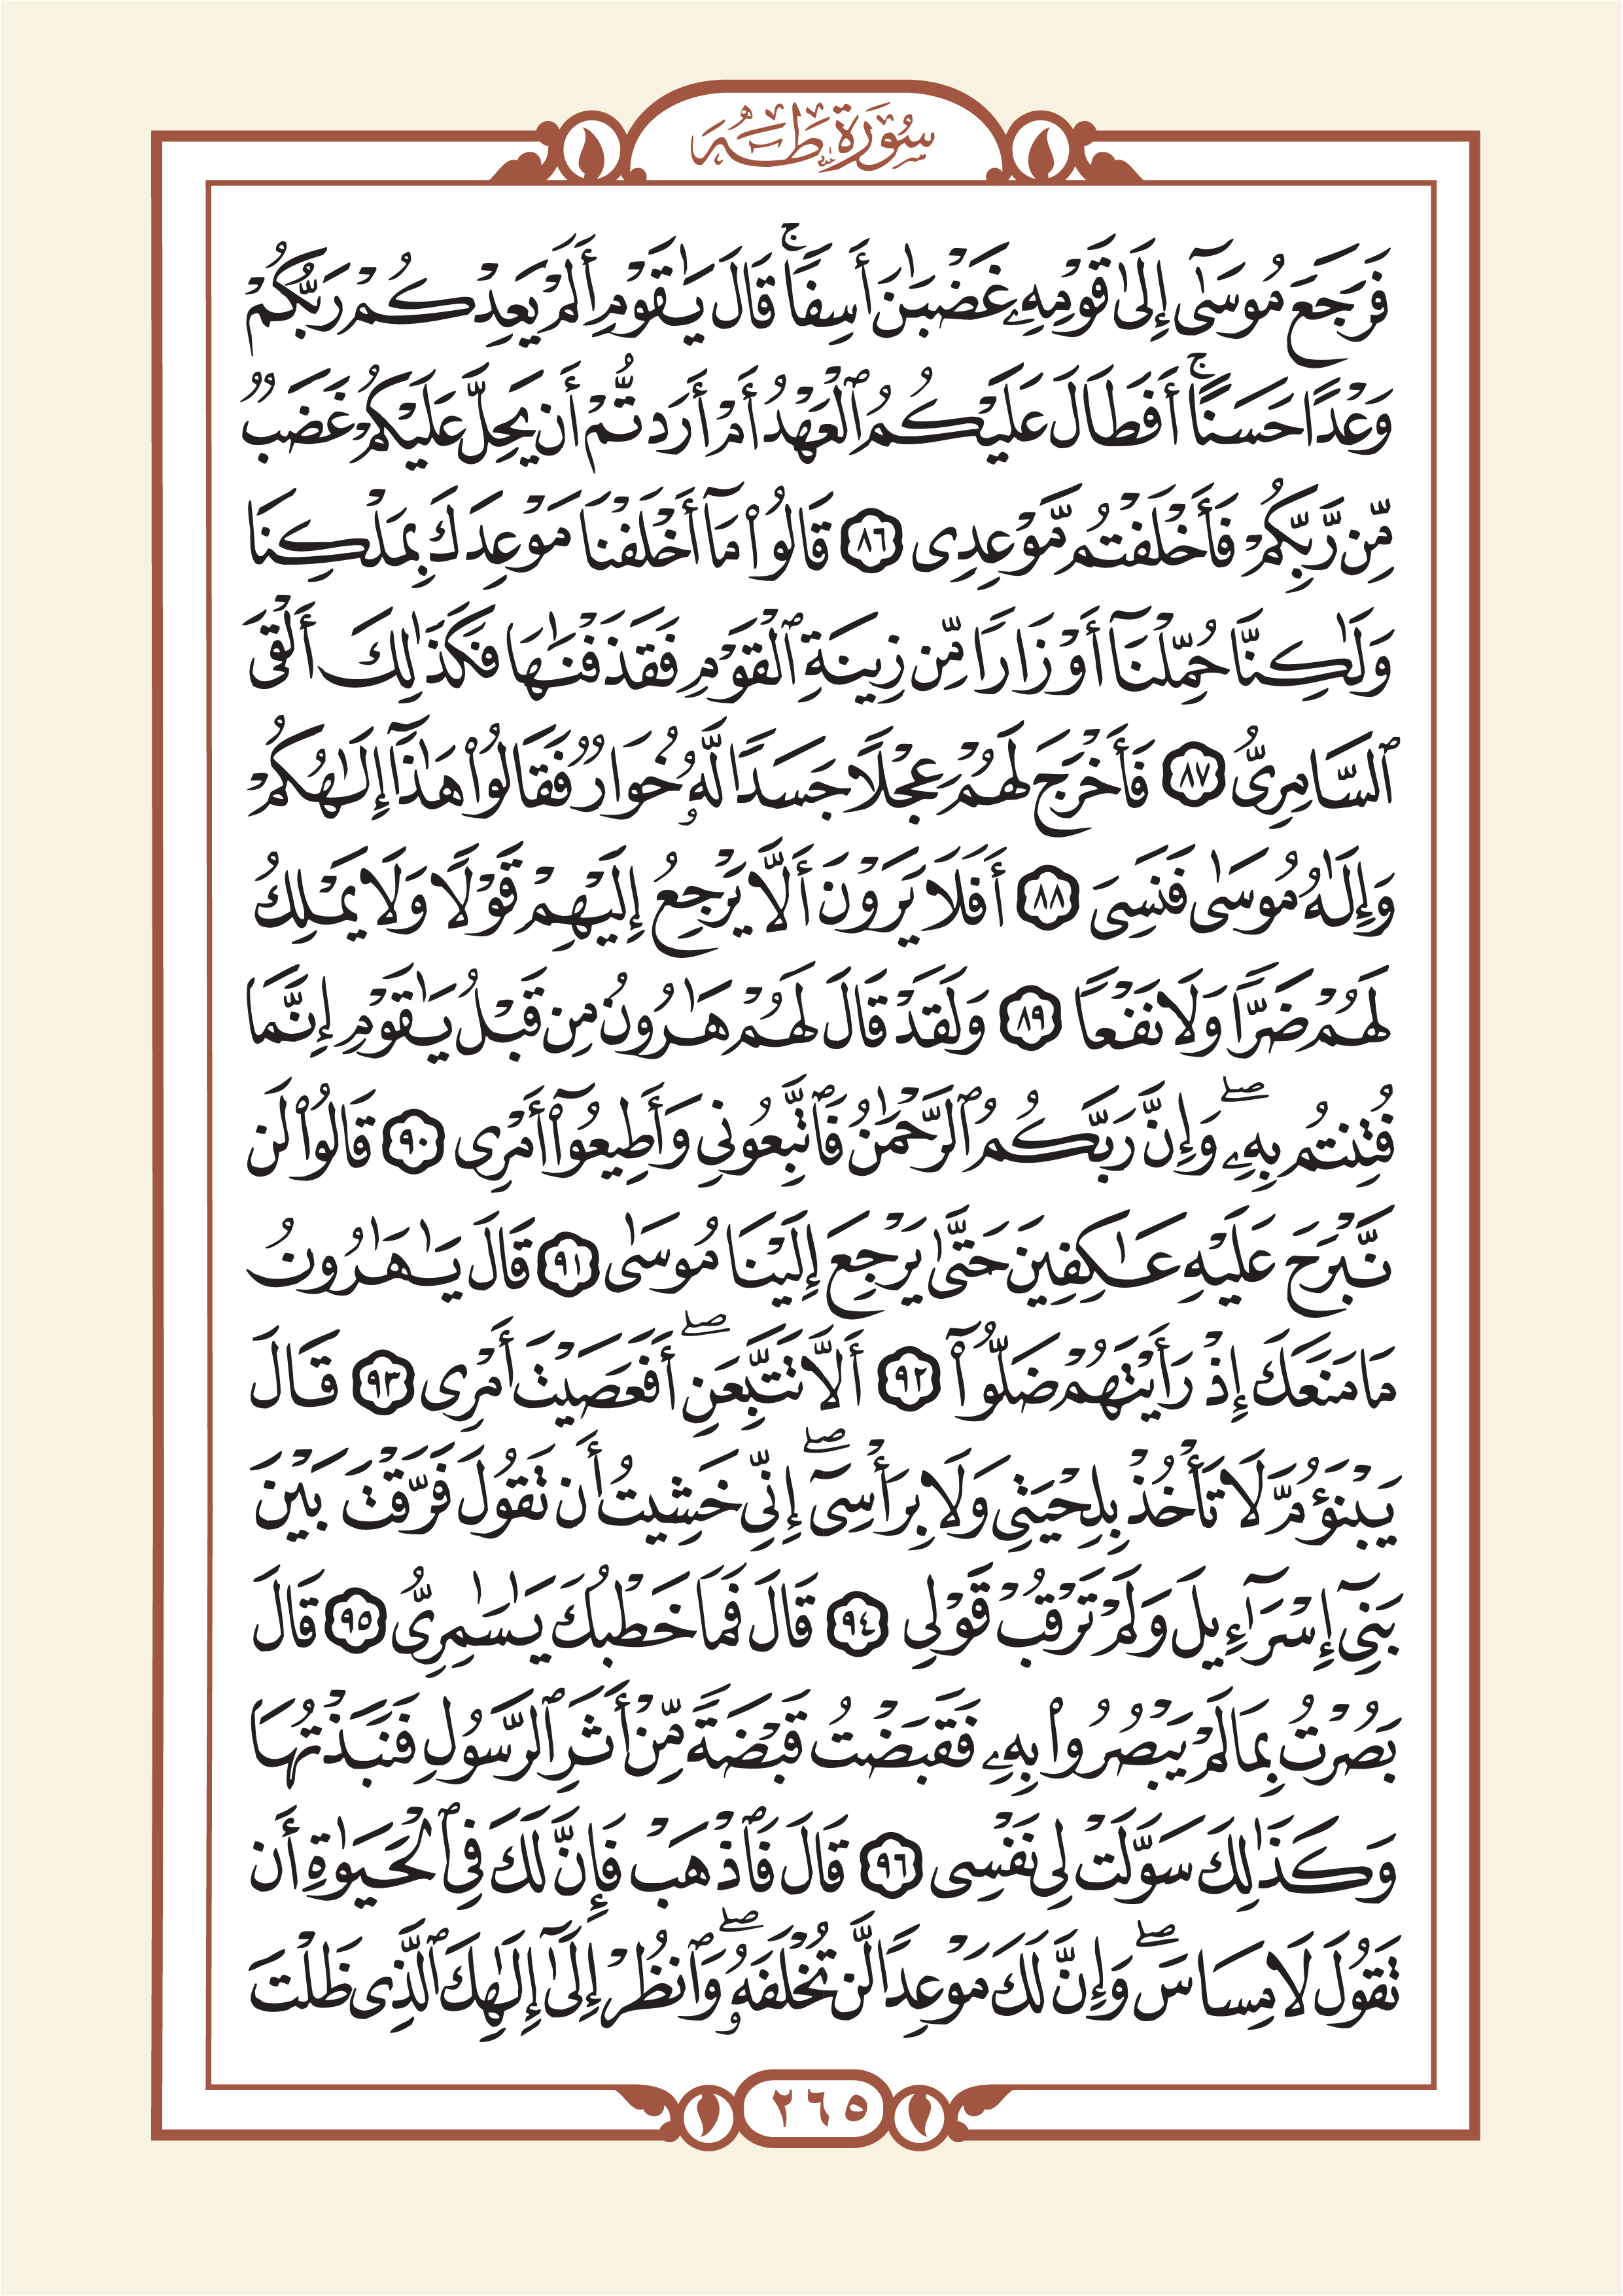 سُورَةُ طه
فَرَجَعَ مُوسَىٰٓ إِلَىٰ قَوْمِهِۦ غَضْبَـٰنَ أَسِفًا ۚ قَالَ يَـٰقَوْمِ أَلَمْ يَعِدْكُمْ رَبُّكُمْ
وَعْدًا حَسَنًا ۚ أَفَطَالَ عَلَيْكُمُ ٱلْعَهْدُ أَمْ أَرَدتُّمْ أَن يَحِلَّ عَلَيْكُمْ غَضَبٌ
مِّن رَّبِّكُمْ فَأَخْلَفْتُم مَّوْعِدِى ٨٦ قَالُوا۟ مَآ أَخْلَفْنَا مَوْعِدَكَ بِمَلْكِنَا
وَلَـٰكِنَّا حُمِّلْنَآ أَوْزَارًا مِّن زِينَةِ ٱلْقَوْمِ فَقَذَفْنَـٰهَا فَكَذَٰلِكَ أَلْقَى
ٱلسَّامِرِىُّ ٨٧ فَأَخْرَجَ لَهُمْ عِجْلًا جَسَدًا لَّهُۥ خُوَارٌ فَقَالُوا۟ هَـٰذَآ إِلَـٰهُكُمْ
وَإِلَـٰهُ مُوسَىٰ فَنَسِىَ ٨٨ أَفَلَا يَرَوْنَ أَلَّا يَرْجِعُ إِلَيْهِمْ قَوْلًا وَلَا يَمْلِكُ
لَهُمْ ضَرًّا وَلَا نَفْعًا ٨٩ وَلَقَدْ قَالَ لَهُمْ هَـٰرُونُ مِن قَبْلُ يَـٰقَوْمِ إِنَّمَا
فُتِنتُم بِهِۦ ۖ وَإِنَّ رَبَّكُمُ ٱلرَّحْمَـٰنُ فَٱتَّبِعُونِى وَأَطِيعُوٓا۟ أَمْرِى ٩٠ قَالُوا۟ لَن
نَّبْرَحَ عَلَيْهِ عَـٰكِفِينَ حَتَّىٰ يَرْجِعَ إِلَيْنَا مُوسَىٰ ٩١ قَالَ يَـٰهَـٰرُونُ
مَا مَنَعَكَ إِذْ رَأَيْتَهُمْ ضَلُّوٓا۟ ٩٢ أَلَّا تَتَّبِعَنِ ۖ أَفَعَصَيْتَ أَمْرِى ٩٣ قَالَ
يَبْنَؤُمَّ لَا تَأْخُذْ بِلِحْيَتِى وَلَا بِرَأْسِىٓ ۖ إِنِّى خَشِيتُ أَن تَقُولَ فَرَّقْتَ بَيْنَ
بَنِىٓ إِسْرَٰٓءِيلَ وَلَمْ تَرْقُبْ قَوْلِى ٩٤ قَالَ فَمَا خَطْبُكَ يَـٰسَـٰمِرِىُّ ٩٥ قَالَ
بَصُرْتُ بِمَا لَمْ يَبْصُرُوا۟ بِهِۦ فَقَبَضْتُ قَبْضَةً مِّنْ أَثَرِ ٱلرَّسُولِ فَنَبَذْتُهَا
وَكَذَٰلِكَ سَوَّلَتْ لِى نَفْسِى ٩٦ قَالَ فَٱذْهَبْ فَإِنَّ لَكَ فِى ٱلْحَيَوٰةِ أَن
تَقُولَ لَا مِسَاسَ ۖ وَإِنَّ لَكَ مَوْعِدًا لَّن تُخْلَفَهُۥ ۖ وَٱنظُرْ إِلَىٰٓ إِلَـٰهِكَ ٱلَّذِى ظَلْتَ
٢٦٥